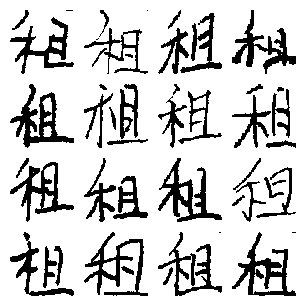 租租租租
租租租租
租租租租
租租租租